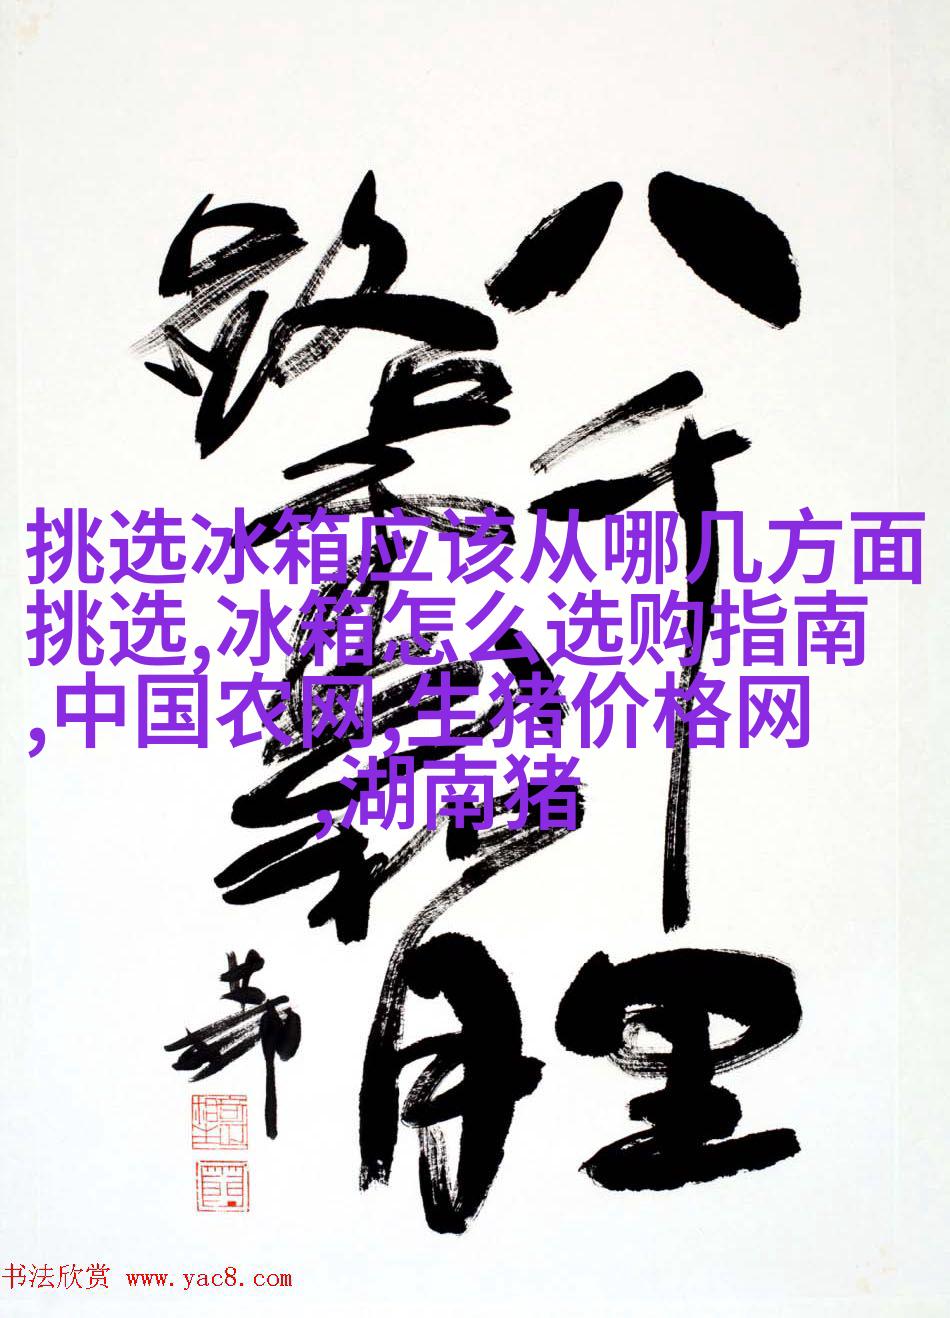 八千里
路云和月
挑选冰箱应该从哪几方面
挑选,冰箱怎么选购指南
,中国农网,生猪价格网
,湖南猪
书法欣赏 www.yac8.com